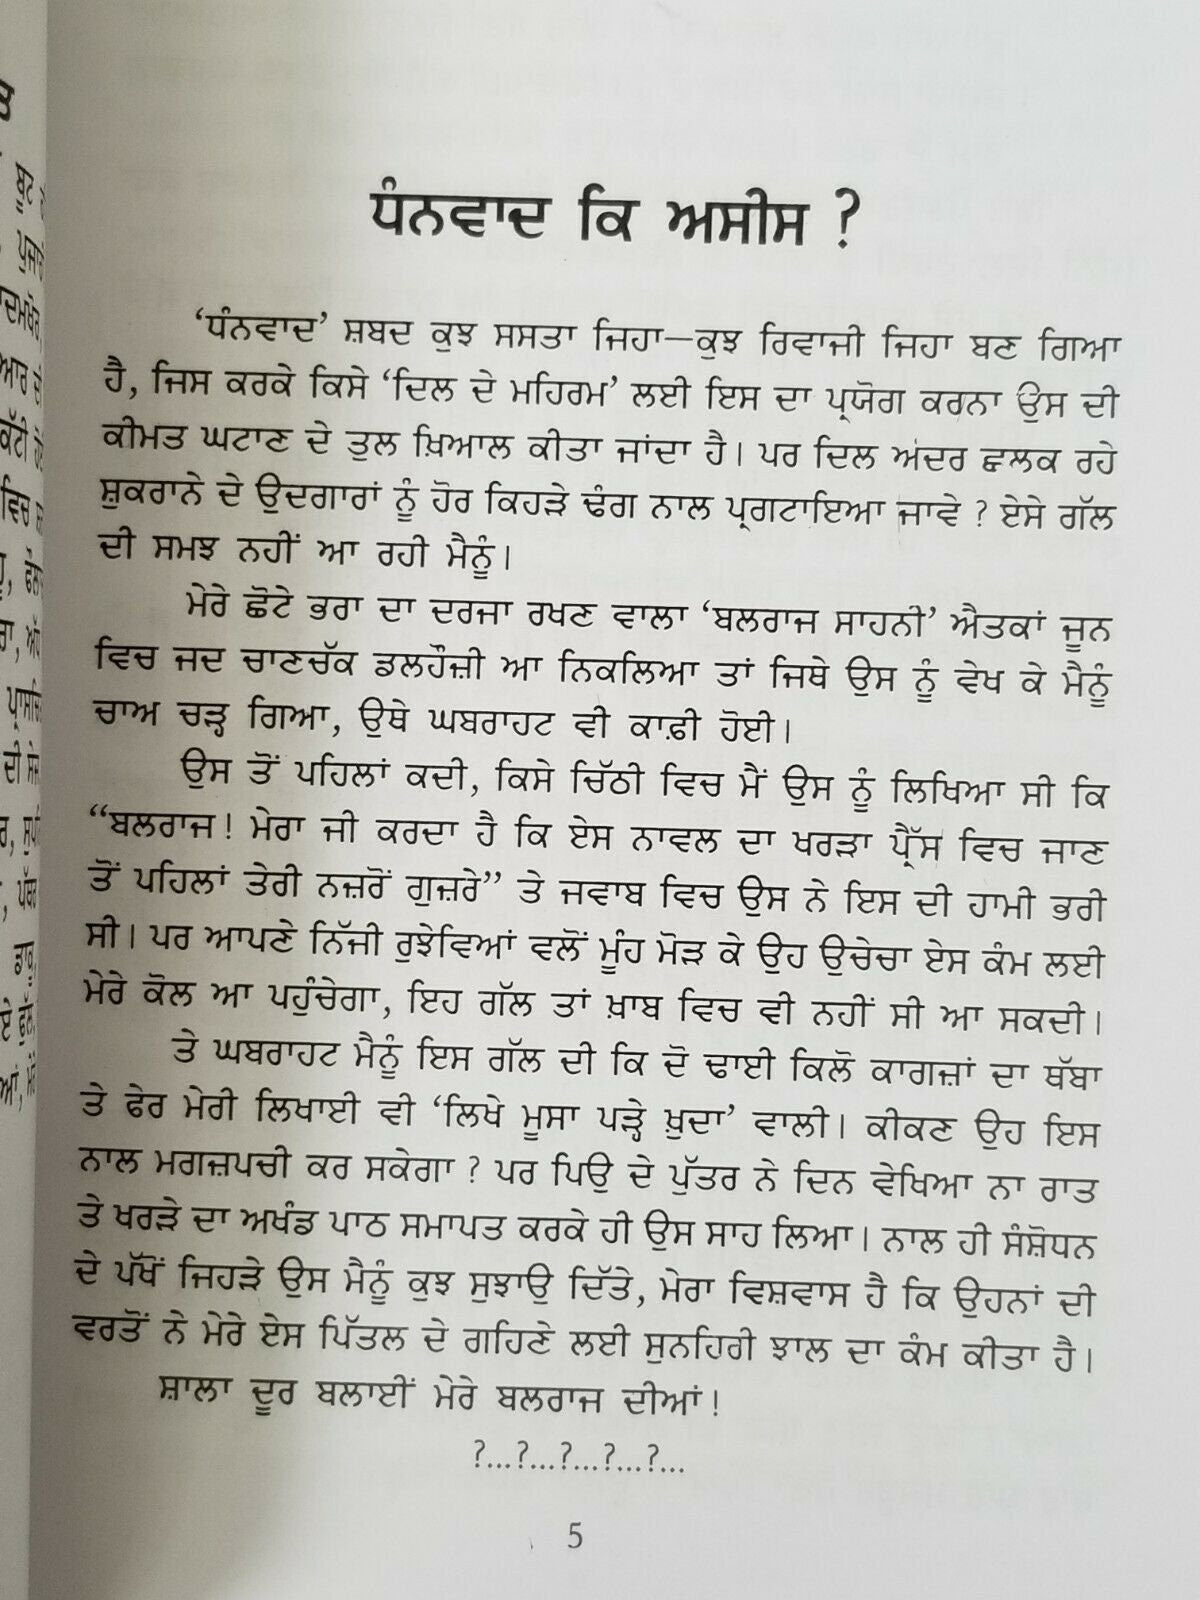 ਧੰਨਵਾਦ ਕਿ ਅਸੀਸ ?
‘ਧੰਨਵਾਦ’ ਸ਼ਬਦ ਕੁਝ ਸਸਤਾ ਜਿਹਾ—ਕੁਝ ਰਿਵਾਜੀ ਜਿਹਾ ਬਣ ਗਿਆ
ਹੈ, ਜਿਸ ਕਰਕੇ ਕਿਸੇ ‘ਦਿਲ ਦੇ ਮਹਿਰਮ’ ਲਈ ਇਸ ਦਾ ਪ੍ਰਯੋਗ ਕਰਨਾ ਉਸ ਦੀ
ਕੀਮਤ ਘਟਾਣ ਦੇ ਤੁਲ ਖ਼ਿਆਲ ਕੀਤਾ ਜਾਂਦਾ ਹੈ। ਪਰ ਦਿਲ ਅੰਦਰ ਛਲਕ ਰਹੇ
ਸ਼ੁਕਰਾਨੇ ਦੇ ਉਦਗਾਰਾਂ ਨੂੰ ਹੋਰ ਕਿਹੜੇ ਢੰਗ ਨਾਲ ਪ੍ਰਗਟਾਇਆ ਜਾਵੇ ? ਏਸੇ ਗੱਲ
ਦੀ ਸਮਝ ਨਹੀਂ ਆ ਰਹੀ ਮੈਨੂੰ।
ਮੇਰੇ ਛੋਟੇ ਭਰਾ ਦਾ ਦਰਜਾ ਰਖਣ ਵਾਲਾ ‘ਬਲਰਾਜ ਸਾਹਨੀ’ ਐਤਕਾਂ ਜੂਨ
ਵਿਚ ਜਦ ਚਾਣਚੱਕ ਡਲਹੌਜ਼ੀ ਆ ਨਿਕਲਿਆ ਤਾਂ ਜਿਥੇ ਉਸ ਨੂੰ ਵੇਖ ਕੇ ਮੈਨੂੰ
ਚਾਅ ਚੜ੍ਹ ਗਿਆ, ਉਥੇ ਘਬਰਾਹਟ ਵੀ ਕਾਫ਼ੀ ਹੋਈ।
ਉਸ ਤੋਂ ਪਹਿਲਾਂ ਕਦੀ, ਕਿਸੇ ਚਿੱਠੀ ਵਿਚ ਮੈਂ ਉਸ ਨੂੰ ਲਿਖਿਆ ਸੀ ਕਿ
“ਬਲਰਾਜ! ਮੇਰਾ ਜੀ ਕਰਦਾ ਹੈ ਕਿ ਏਸ ਨਾਵਲ ਦਾ ਖਰੜਾ ਪ੍ਰੈੱਸ ਵਿਚ ਜਾਣ
ਤੋਂ ਪਹਿਲਾਂ ਤੇਰੀ ਨਜ਼ਰੋਂ ਗੁਜ਼ਰੇ” ਤੇ ਜਵਾਬ ਵਿਚ ਉਸ ਨੇ ਇਸ ਦੀ ਹਾਮੀ ਭਰੀ
ਸੀ। ਪਰ ਆਪਣੇ ਨਿੱਜੀ ਰੁਝੇਵਿਆਂ ਵਲੋਂ ਮੂੰਹ ਮੋੜ ਕੇ ਉਹ ਉਚੇਚਾ ਏਸ ਕੰਮ ਲਈ
ਮੇਰੇ ਕੋਲ ਆ ਪਹੁੰਚੇਗਾ, ਇਹ ਗੱਲ ਤਾਂ ਖ਼ਾਬ ਵਿਚ ਵੀ ਨਹੀਂ ਸੀ ਆ ਸਕਦੀ।
ਤੇ ਘਬਰਾਹਟ ਮੈਨੂੰ ਇਸ ਗੱਲ ਦੀ ਕਿ ਦੋ ਢਾਈ ਕਿਲੋ ਕਾਗਜ਼ਾਂ ਦਾ ਥੱਬਾ
ਤੇ ਫੇਰ ਮੇਰੀ ਲਿਖਾਈ ਵੀ ‘ਲਿਖੇ ਮੂਸਾ ਪੜ੍ਹੇ ਖ਼ੁਦਾ’ ਵਾਲੀ। ਕੀਕਣ ਉਹ ਇਸ
ਨਾਲ ਮਗਜ਼ਪਚੀ ਕਰ ਸਕੇਗਾ ? ਪਰ ਪਿਉ ਦੇ ਪੁੱਤਰ ਨੇ ਦਿਨ ਵੇਖਿਆ ਨਾ ਰਾਤ
ਤੇ ਖਰੜੇ ਦਾ ਅਖੰਡ ਪਾਠ ਸਮਾਪਤ ਕਰਕੇ ਹੀ ਉਸ ਸਾਹ ਲਿਆ। ਨਾਲ ਹੀ ਸੰਸ਼ੋਧਨ
ਦੇ ਪੱਖੋਂ ਜਿਹੜੇ ਉਸ ਮੈਨੂੰ ਕੁਝ ਸੁਝਾਉ ਦਿੱਤੇ, ਮੇਰਾ ਵਿਸ਼ਵਾਸ ਹੈ ਕਿ ਉਹਨਾਂ ਦੀ
ਵਰਤੋਂ ਨੇ ਮੇਰੇ ਏਸ ਪਿੱਤਲ ਦੇ ਗਹਿਣੇ ਲਈ ਸੁਨਹਿਰੀ ਝਾਲ ਦਾ ਕੰਮ ਕੀਤਾ ਹੈ।
ਸ਼ਾਲਾ ਦੂਰ ਬਲਾਈਂ ਮੇਰੇ ਬਲਰਾਜ ਦੀਆਂ!
?...?...?...?...?...
5